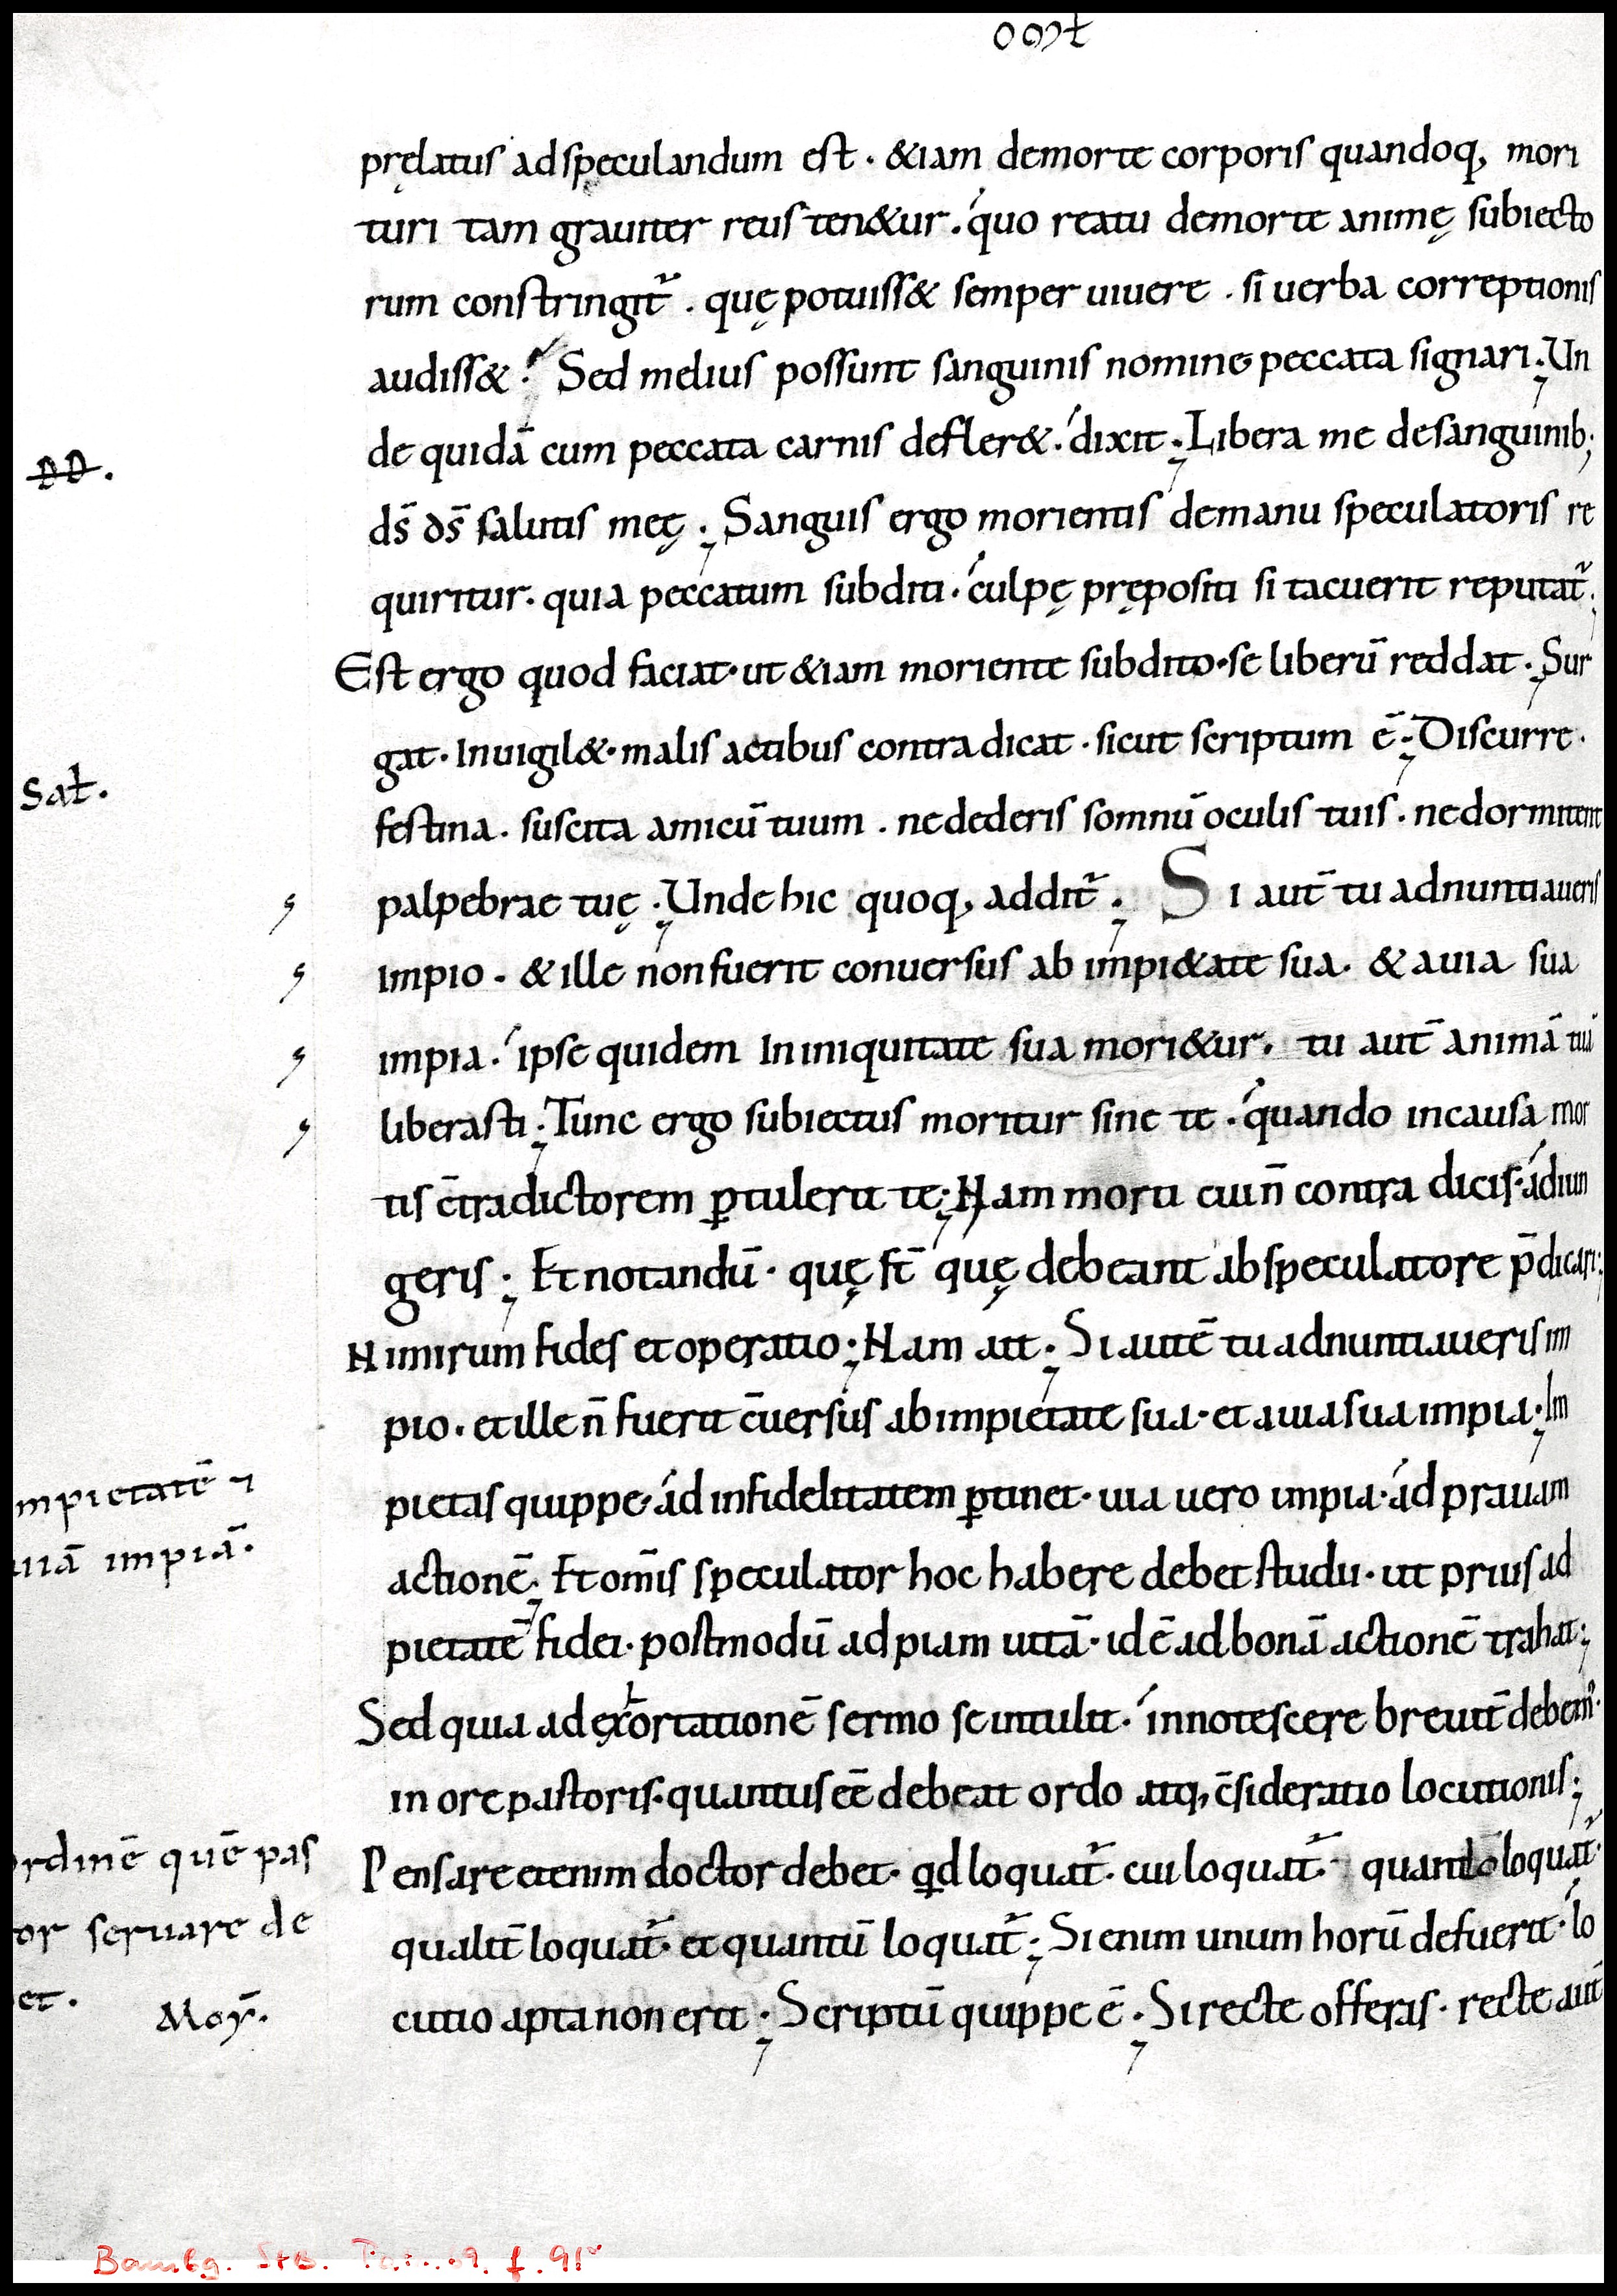 oo9ł
pręlatus ad speculandum est · &iam demorte corporis quandoq, mori
turi tam grauiter reus ten&ur · quo reatu demorte animę subiecto
rum constringit᷑ · quę potuiss& semper uiuere · si uerba correptionis
audiss&? Sed melius possunt sanguinis nomine peccata signari; Un
de quidā cum peccata carnis defler& · dixit; Libera me desanguinib;
DD.
ds̄ ds̄ salutis meę; Sanguis ergo morientis demanu speculatoris re
quiritur · quia peccatum subditi · culpę prępositi si tacuerit reputat᷑;
Est ergo quod faciat · ut &iam moriente subdito · se liberū reddat; Sur
gat · Inuigil& · malis actibus contradicat · sicut scriptum ē; Discurre ·
Sał.
festina · suscita amicū tuum · nedederis somnū oculis tuis · nedormitent
palpebrae tuę; Unde hic quoq, addit᷑; Si aut̄ tu adnuntiaueris
impio · & ille nonfuerit conuersus ab impi&ate sua · & auia sua
impia · ipse quidem In iniquitate sua mori&ur · tu aut̄ animā tuā
liberasti; Tunc ergo subiectus moritur sine te · quando incausa mor
tis c̄tradictorem ꝑtulerit te; Nam morti cui n̄ contra dicis · adiun
geris; Et notandū · quę st̄ quę debeant abspeculatore p̄dicari;
Nimirum fides et operatio; Nam ait; Si autē tu adnuntiaueris im
pio · et ille n̄ fuerit c̄uersus ab impietate sua · et auia sua impia; Im
mpietatē ⁊
pietas quippe · ad infidelitatem ꝑtinet · uia uero impia · ad prauam
uiā impiā.
actionē; Et om̄is speculator hoc habere debet studii · ut prius ad
pietatē fidei · postmodū ad piam uitā · id ē ad bonā actionē trahat;
Sed quia ad exhortationē sermo se intulit · innotescere breuit̄ debem᷒
in ore pastoris · quantus eē debeat ordo atq, c̄sideratio locutionis;
ordinē quē pas
Pensare etenim doctor debet · qd loquat᷑ · cui loquat᷑ · quando loquat᷑ ·
tor seruare de
qualit̄ loquat᷑ · et quantū loquat᷑; Si enim unum horū defuerit · lo
et. Moy᷒.
cutio apta non erit; Scriptū quippe ē; Si recte offeras · recte aut̄
Bambg. Stb. f. 91ᵛ